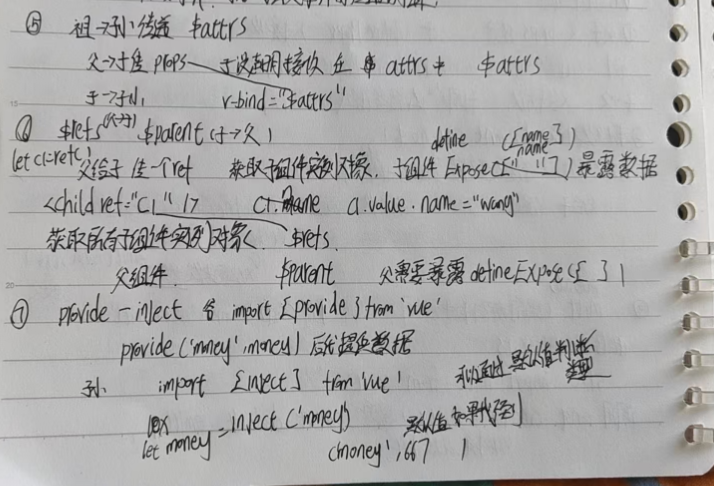 ⑤ 祖→孙 传递 $attrs
父→子 传 props 子没有用接收 在 $attrs $attrs
子→孙 v-bind="$attrs"
⑥ $refs(父→子) $parent(子→父)
let c1=ref() 父给子 传一个ref 获取子组件实例对象. 子组件 defineExpose({name}) 暴露数据
<child ref="c1" /> c1.name c1.value.name="wang"
获取所有子组件实例对象 $refs.
父组件. $parent 父需要暴露 defineExpose({ })
⑦ provide - inject 父 import {provide} from 'vue'
provide('money', money) 后代提供数据
孙. import {inject} from 'vue' 可以通过默认值判断类型
let money = inject('money') 默认值 如果找不到
('money', 667 )